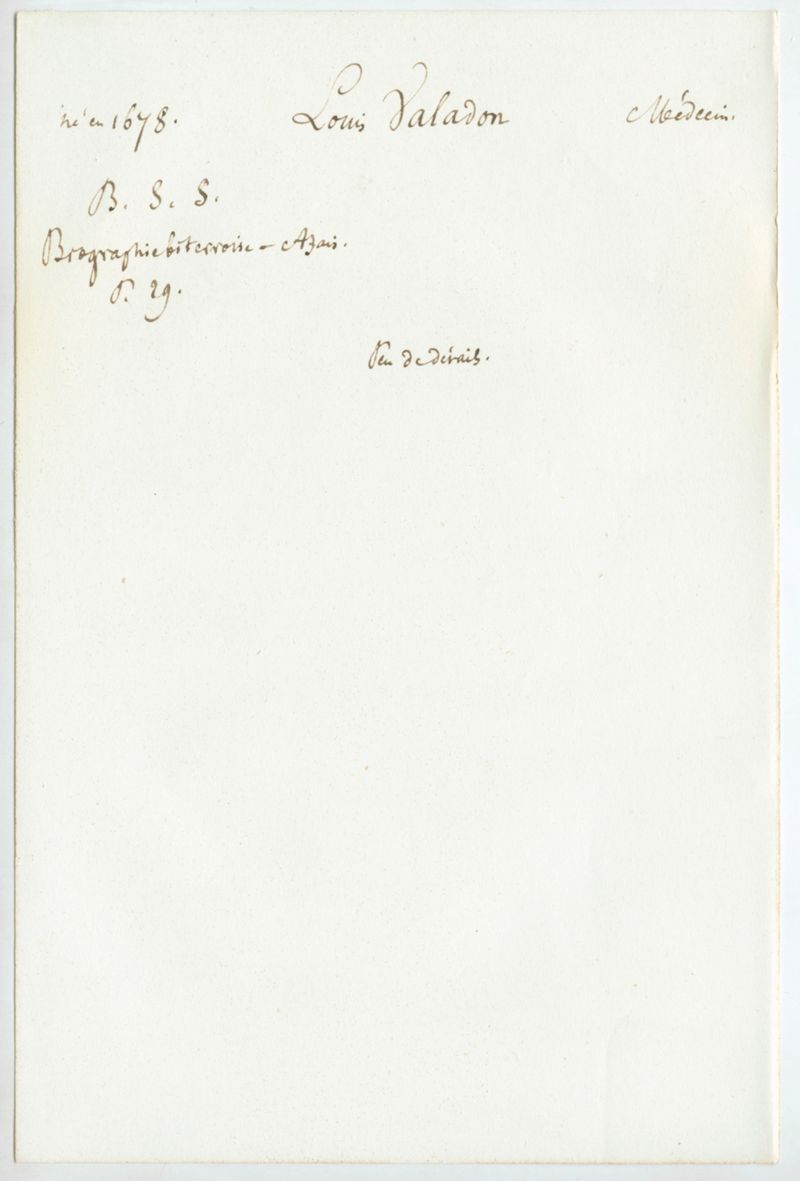 né en 1678. Louis Valadon Médecin.
B. S. S.
Biographie biterroise - Azaïs.
P. 29.
Peu de détails.